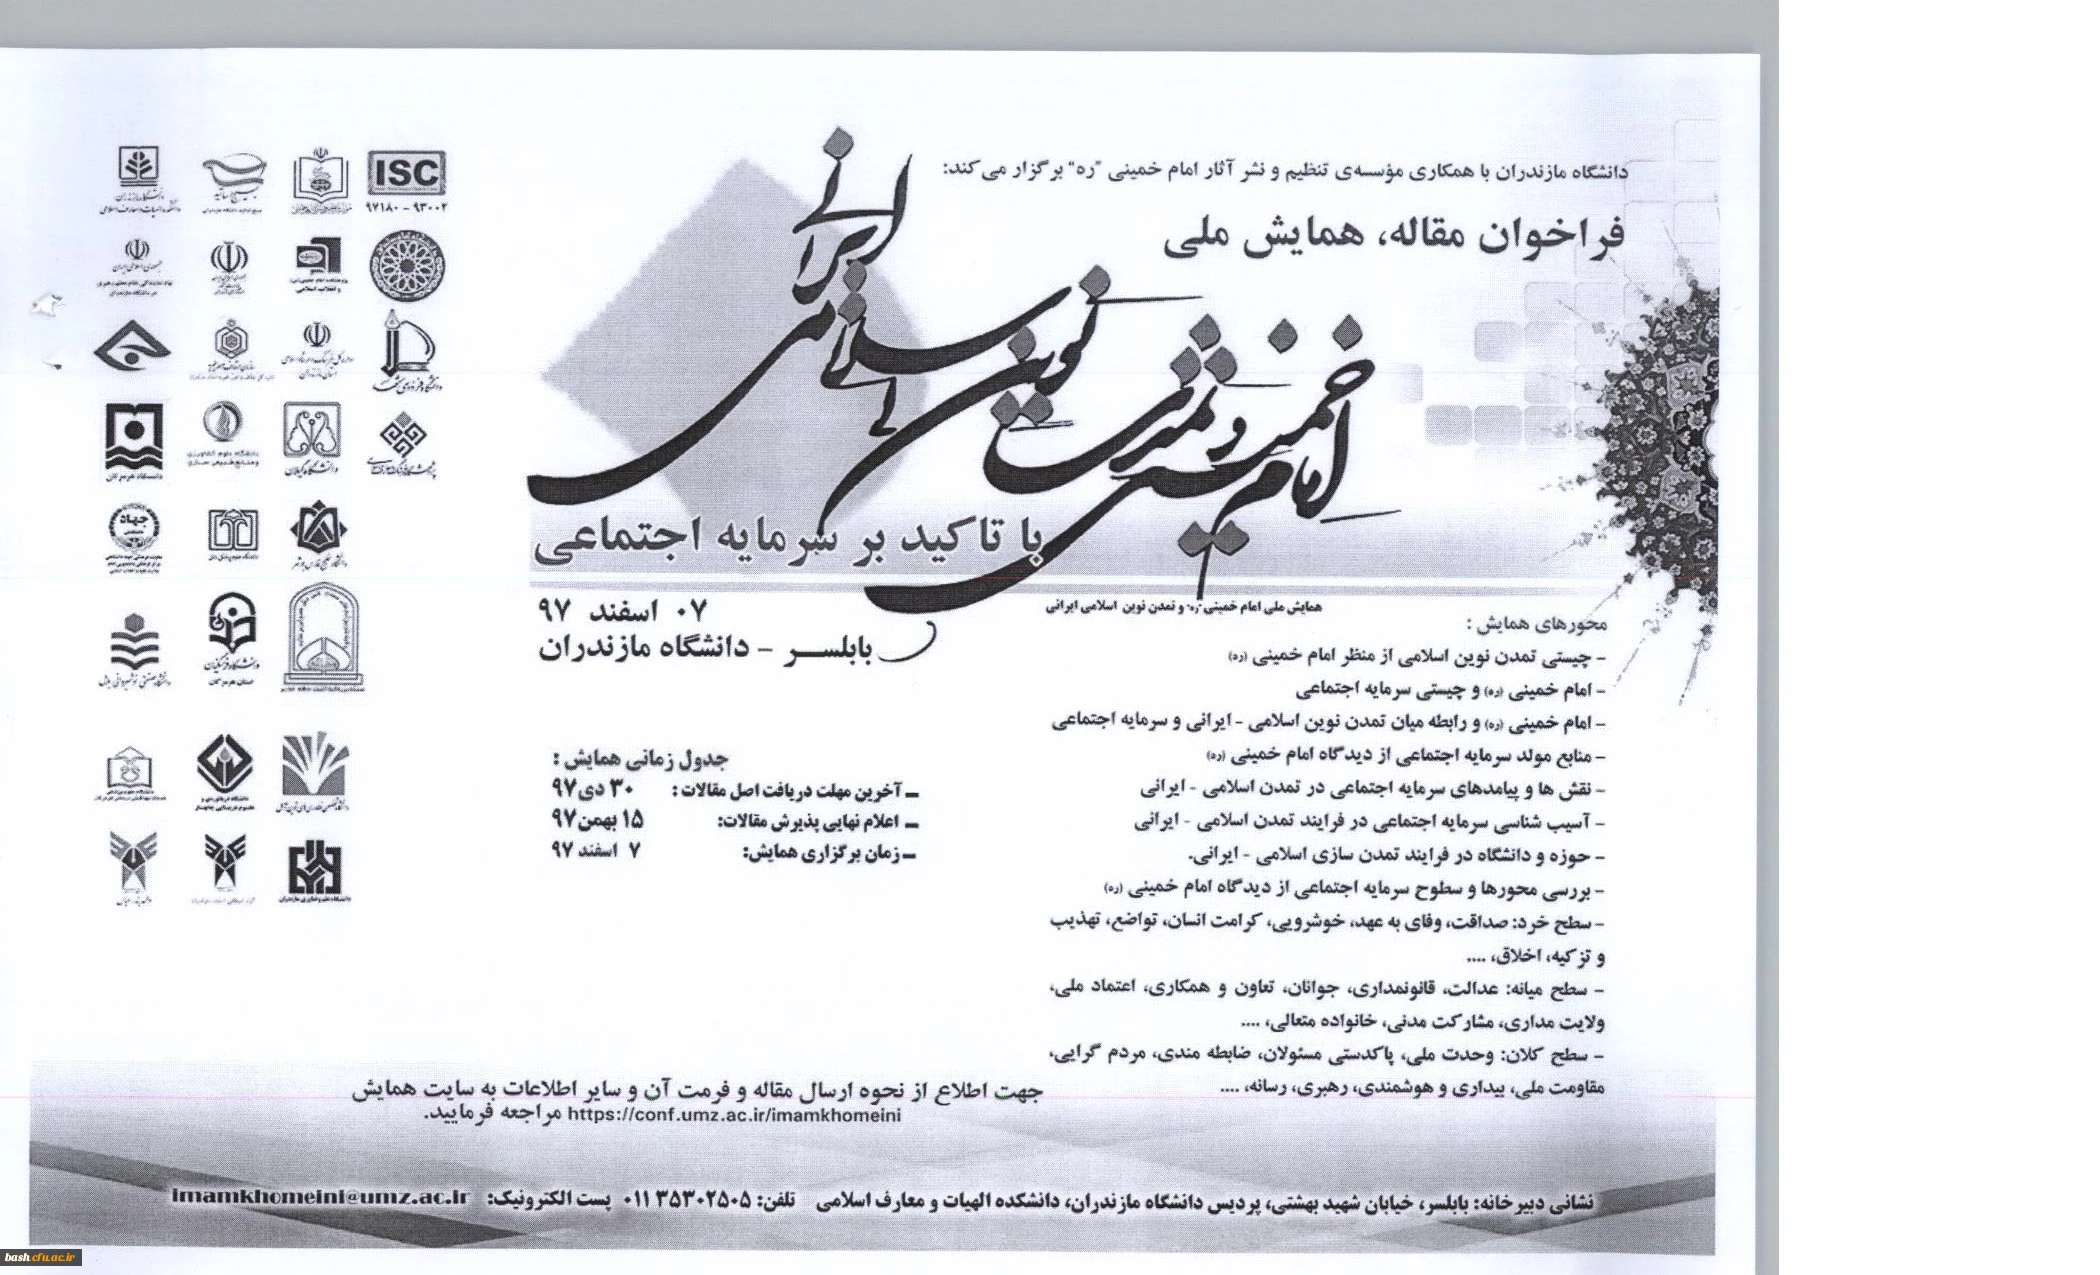 دانشگاه مازندران با همکاری مؤسسه‌ی تنظیم و نشر آثار امام خمینی "ره" برگزار می‌کند:
فراخوان مقاله، همایش ملی
امام خمینی و تمدن نوین اسلامی ایرانی
با تاکید بر سرمایه اجتماعی
همایش ملی امام خمینی ره و تمدن نوین اسلامی ایرانی
۰۷ اسفند ۹۷
بابلسر – دانشگاه مازندران
محورهای همایش :
- چیستی تمدن نوین اسلامی از منظر امام خمینی (ره)
- امام خمینی (ره) و چیستی سرمایه اجتماعی
- امام خمینی (ره) و رابطه میان تمدن نوین اسلامی - ایرانی و سرمایه اجتماعی
- منابع مولد سرمایه اجتماعی از دیدگاه امام خمینی (ره)
- نقش ها و پیامدهای سرمایه اجتماعی در تمدن اسلامی - ایرانی
- آسیب شناسی سرمایه اجتماعی در فرایند تمدن اسلامی - ایرانی
- حوزه و دانشگاه در فرایند تمدن سازی اسلامی - ایرانی.
- بررسی محورها و سطوح سرمایه اجتماعی از دیدگاه امام خمینی (ره)
- سطح خرد: صداقت، وفای به عهد، خوشرویی، کرامت انسان، تواضع، تهذیب
و تزکیه، اخلاق، ....
- سطح میانه: عدالت، قانونمداری، جوانان، تعاون و همکاری، اعتماد ملی،
ولایت مداری، مشارکت مدنی، خانواده متعالی، ....
- سطح کلان: وحدت ملی، پاکدستی مسئولان، ضابطه مندی، مردم گرایی،
مقاومت ملی، بیداری و هوشمندی، رهبری، رسانه، ....
جدول زمانی همایش :
ـ آخرین مهلت دریافت اصل مقالات : ۳۰ دی۹۷
ـ اعلام نهایی پذیرش مقالات: ۱۵ بهمن۹۷
ـ زمان برگزاری همایش: ۷ اسفند ۹۷
ISC
۹۷۱۸۰ - ۹۳۰۰۲
جهاد
جهت اطلاع از نحوه ارسال مقاله و فرمت آن و سایر اطلاعات به سایت همایش
https://conf.umz.ac.ir/imamkhomeini مراجعه فرمایید.
نشانی دبیرخانه: بابلسر، خیابان شهید بهشتی، پردیس دانشگاه مازندران، دانشکده الهیات و معارف اسلامی تلفن: ۰۱۱۳۵۳۰۲۵۰۵ پست الکترونیک: imamkhomeini@umz.ac.ir
bash.cfu.ac.ir